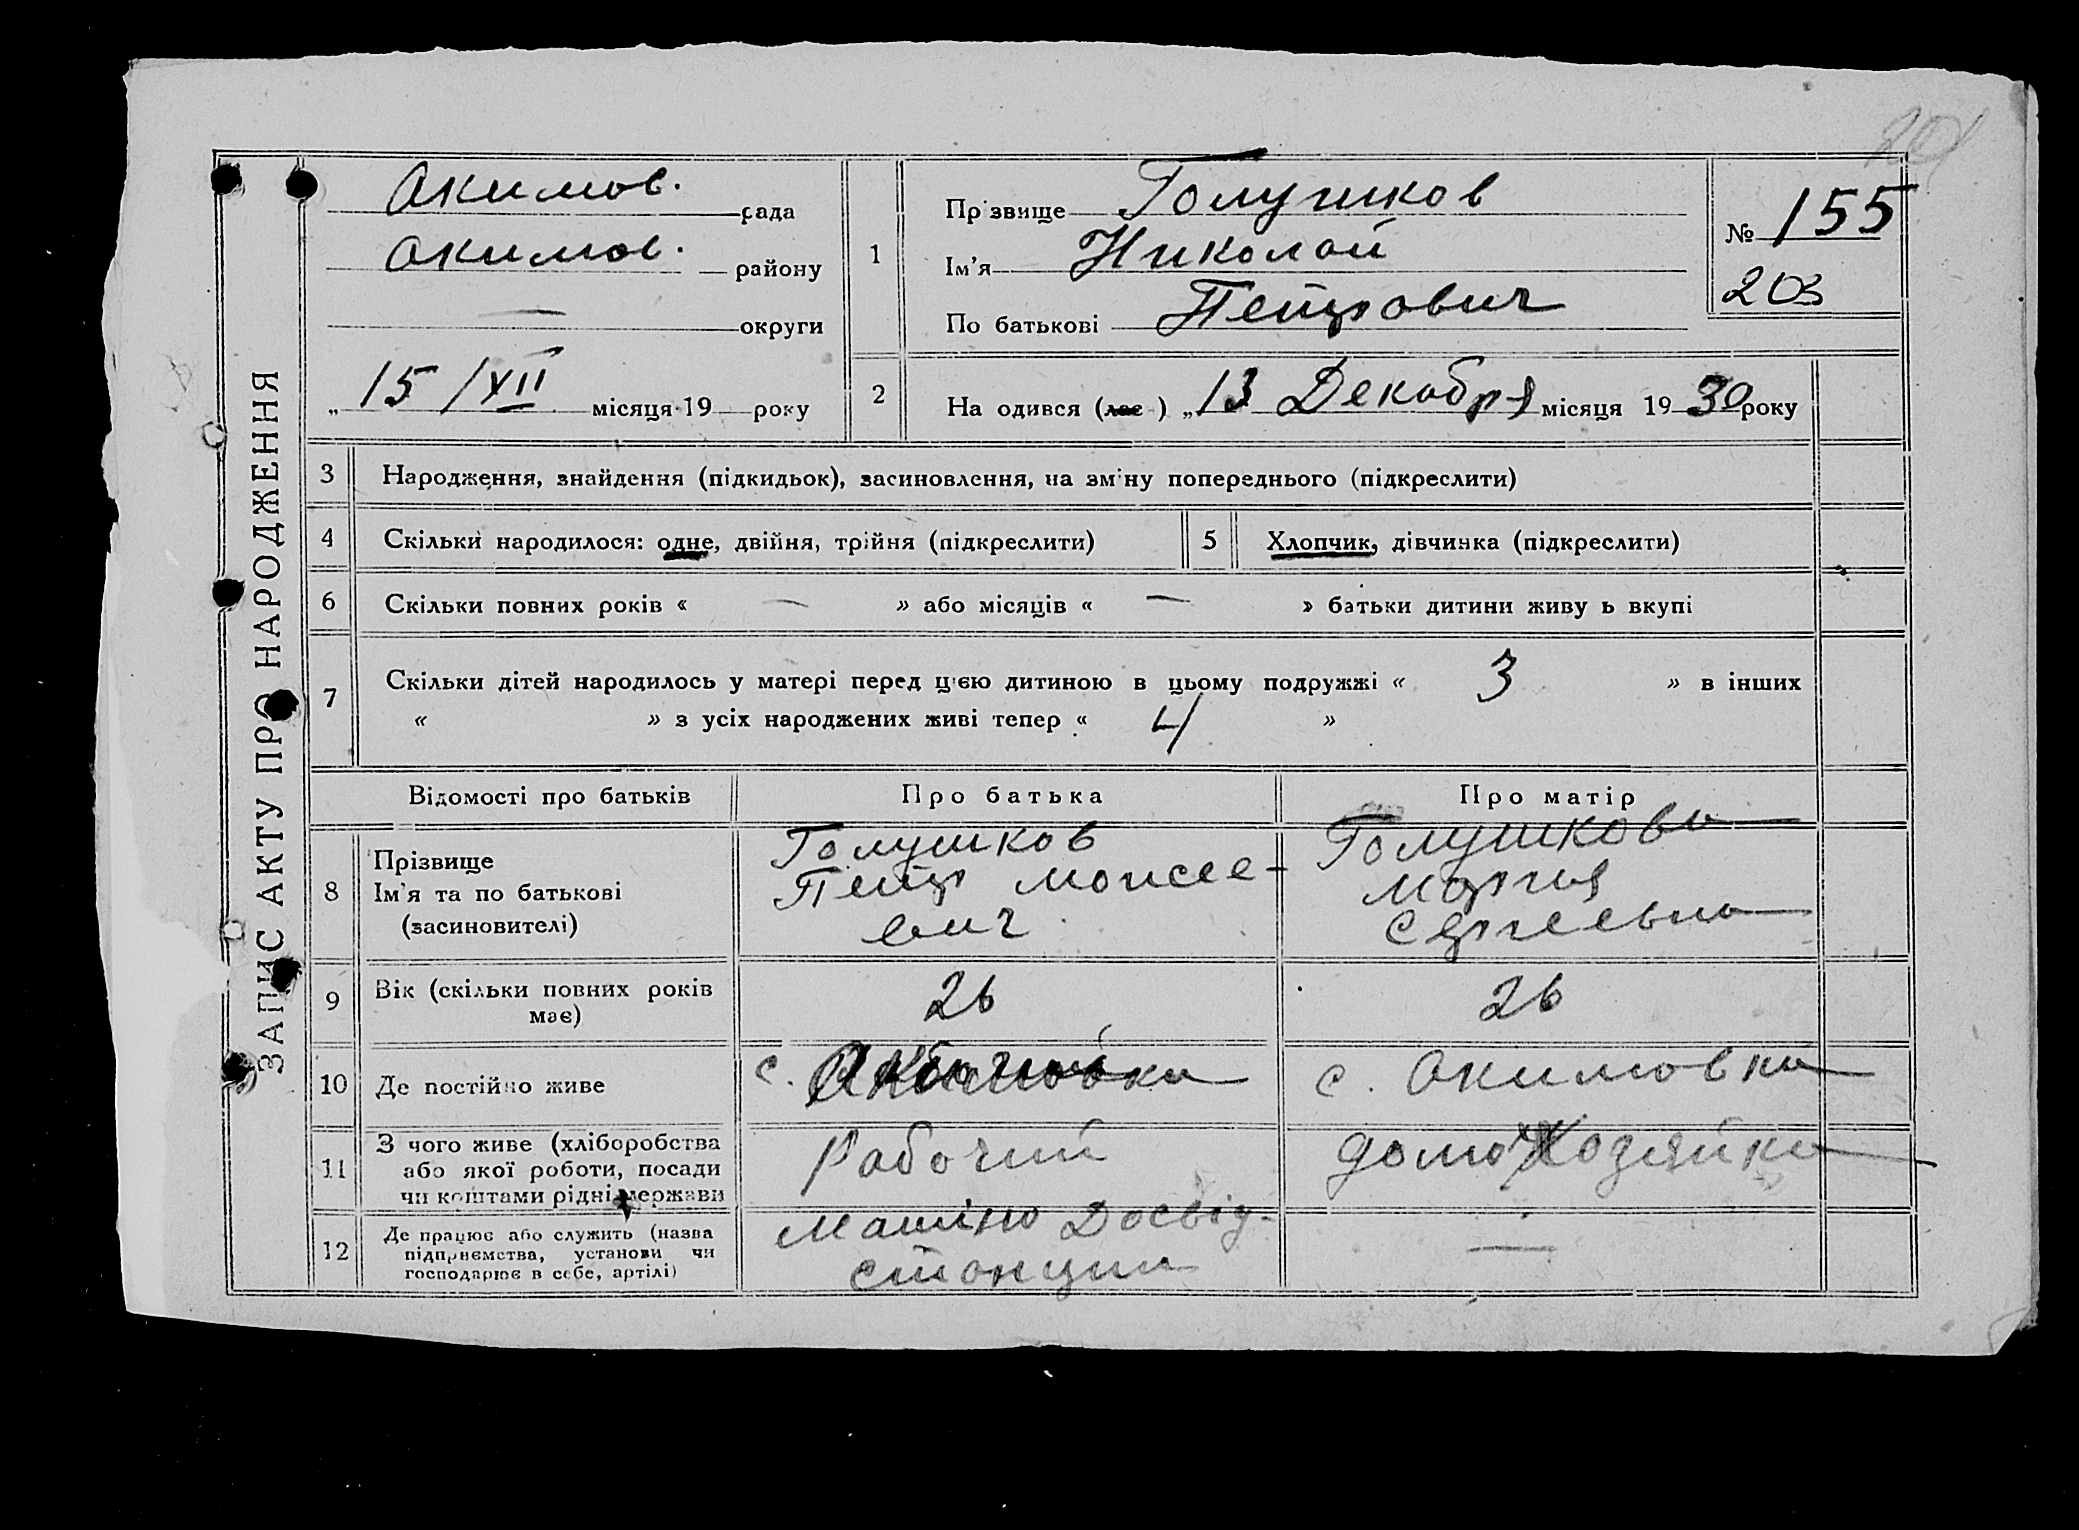 ЗАПИС АКТУ ПРО НАРОДЖЕННЯ
Акимов. рада
Акимов. району
— округи
„ 15/XII місяця 19 року
1
Прізвище Голушков
Ім’я Николай
По батькові Петрович
№ 155
203
2
На одився (лас ) „ 13 Декабря місяця 19 30 року
3 Народження, знайдення (підкидьок), засиновлення, на зміну попереднього (підкреслити)
4 Скільки народилося: одне, двійня, трійня (підкреслити)
5 Хлопчик, дівчинка (підкреслити)
6 Скільки повних років « — » або місяців « — » батьки дитини живу ь вкупі
7 Скільки дітей народилось у матері перед цією дитиною в цьому подружжі « 3 » в інших
« » з усіх народжених живі тепер « 4 »
Відомості про батьків Про батька Про матір
8 Прізвище
Ім’я та по батькові
(засиновителі)
Голушков
Петр Моисее-
вич
Голушкова
Мария
Сергеевна
9 Вік (скільки повних років
має)
26 26
10 Де постійно живе с. Акимовка с. Акимовка
11 З чого живе (хліборобства
або якої роботи, посади
чи коштами рідні держави
Рабочий Домохозяйка
12 Де працює або служить (назва
підприємства, установи чи
господарює в себе, артілі)
Машіно Досвід.
станции
—